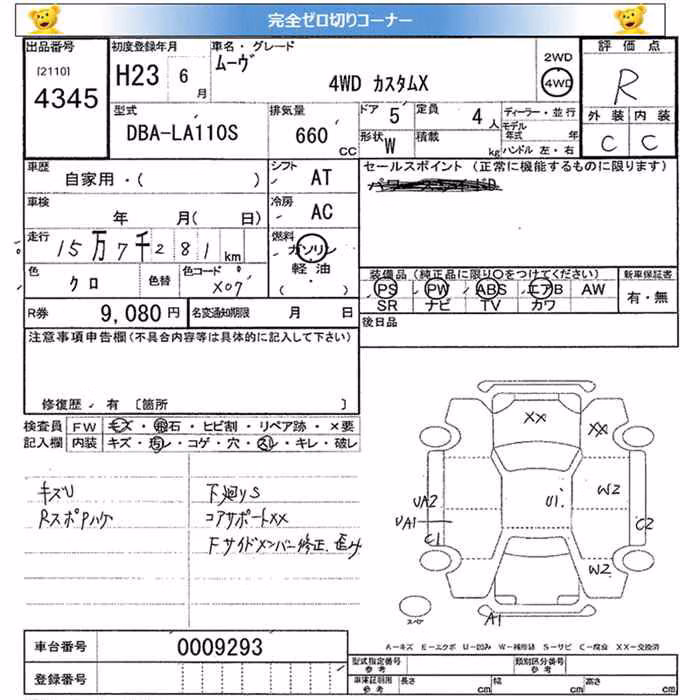 完全ゼロ切りコーナー
出品番号
[2110]
4345
初度登録年月
H23 6月
車名・グレード
ムーヴ
4WD カスタムX
2WD
4WD
評価点
R
外装 内装
C C
型式
DBA-LA110S
排気量
660 CC
ドア 5
定員 4人
形状 W
積載 kg
ディーラー・並行
モデル年式 年
ハンドル 左・右
車歴
自家用・( )
シフト AT
車検
年 月( 日)
冷房 AC
走行
15万7千281km
燃料
ガソリン
軽油
( ・ )
色
クロ
色替
色コード
X07
R券 9,080円
名変通知期限 月 日
セールスポイント (正常に機能するものに限ります)
装備品(純正品に限り○をつけてください)
PS PW ABS エアB AW
SR ナビ TV カワ
新車保証書
有・無
後日品
注意事項申告欄(不具合内容等は具体的に記入して下さい)
修復歴 有 [箇所 ]
検査員
記入欄
FW キズ・飛石・ヒビ割・リペア跡・×要
内装 キズ・汚レ・コゲ・穴・スレ・キレ・破レ
キズU
RスポPハゲ
下廻りS
コアサポートXX
Fサイドメンバー修正、歪み
XX
XX
W2
U1
UA2
UA1
C1
C2
W2
A1
スペア
A-キズ E-エクボ U-凹み W-補修跡 S-サビ C-腐食 XX-交換済
車台番号 0009293
登録番号
型式指定番号
参考
類別区分番号
参考
車庫証明用
参考
長さ cm
幅 cm
高さ cm